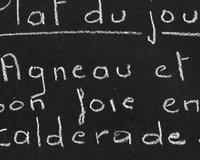 Plat du jou
Agneau et
son foie en
calderade.